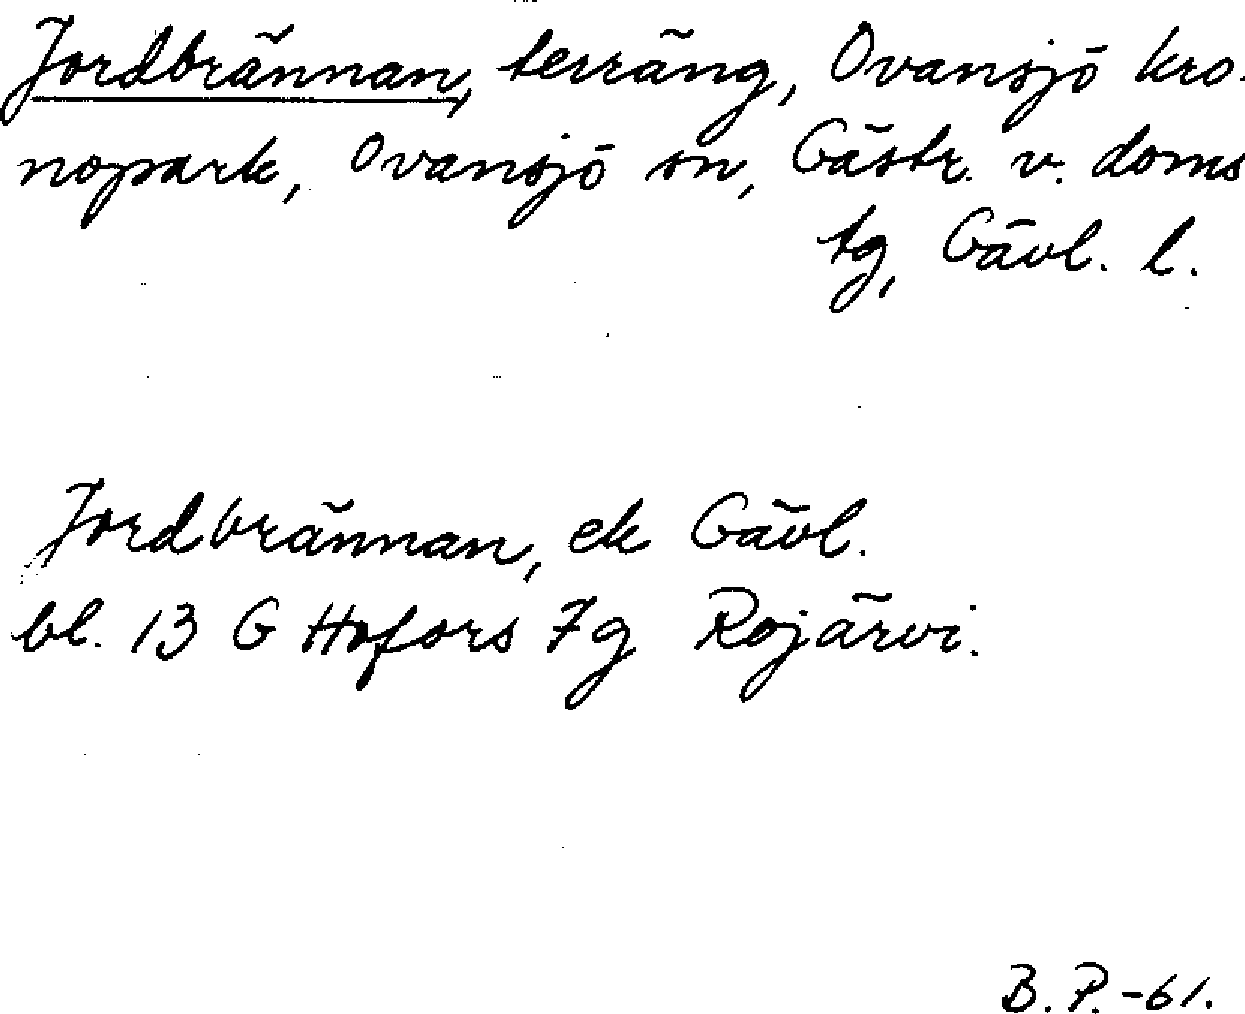 Jordbrännan, terräng, Ovansjö kro-
nopark, Ovansjö sn, Gästr. v. doms
tg, Gävl. l.
Jordbrännan, ek Gävl.
bl. 13 G Hofors 7g Rojärvi.
B. P. -61.